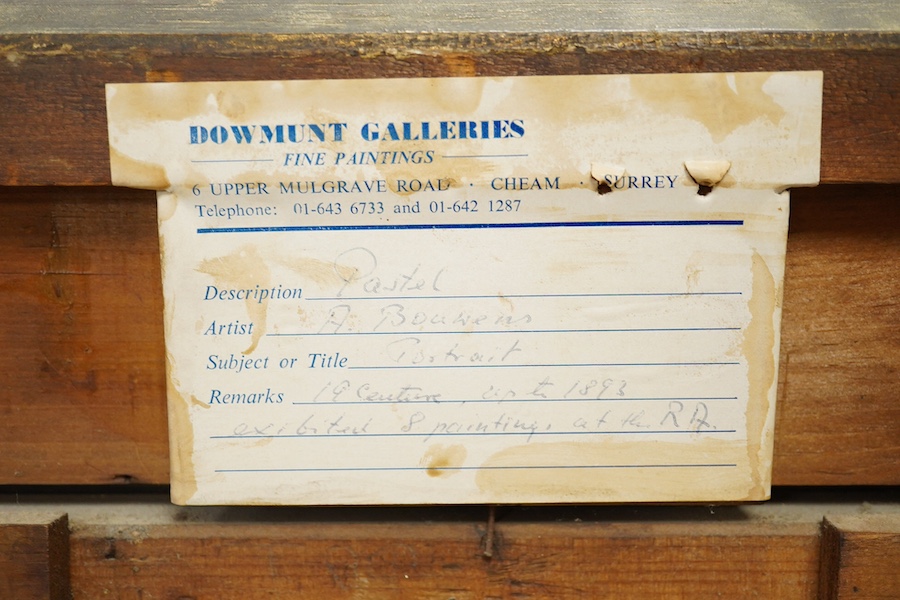 DOWMUNT GALLERIES
FINE PAINTINGS
6 UPPER MULGRAVE ROAD · CHEAM · SURREY
Telephone: 01-643 6733 and 01-642 1287
Description Pastel
Artist A. Bouwens
Subject or Title Portrait
Remarks 19 Century, up to 1893
exibited 8 paintings at the R.A.